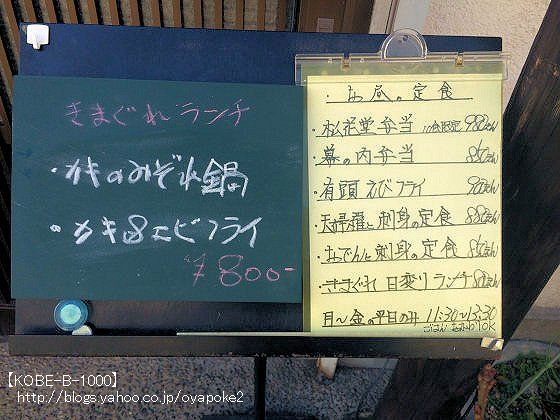 きまぐれランチ
・カキのみぞれ鍋
・カキ&エビフライ
¥800-
・お昼の定食
・松花堂弁当 10食限定 980えん
・幕の内弁当 850えん
・有頭えびフライ 900えん
・天婦羅と刺身の定食 880えん
・おでんと刺身の定食 850えん
・きまぐれ日変りランチ 800えん
月〜金の平日のみ 11:30〜13:30
ごはん おかわりOK
【KOBE-B-1000】
http://blogs.yahoo.co.jp/oyapoke2